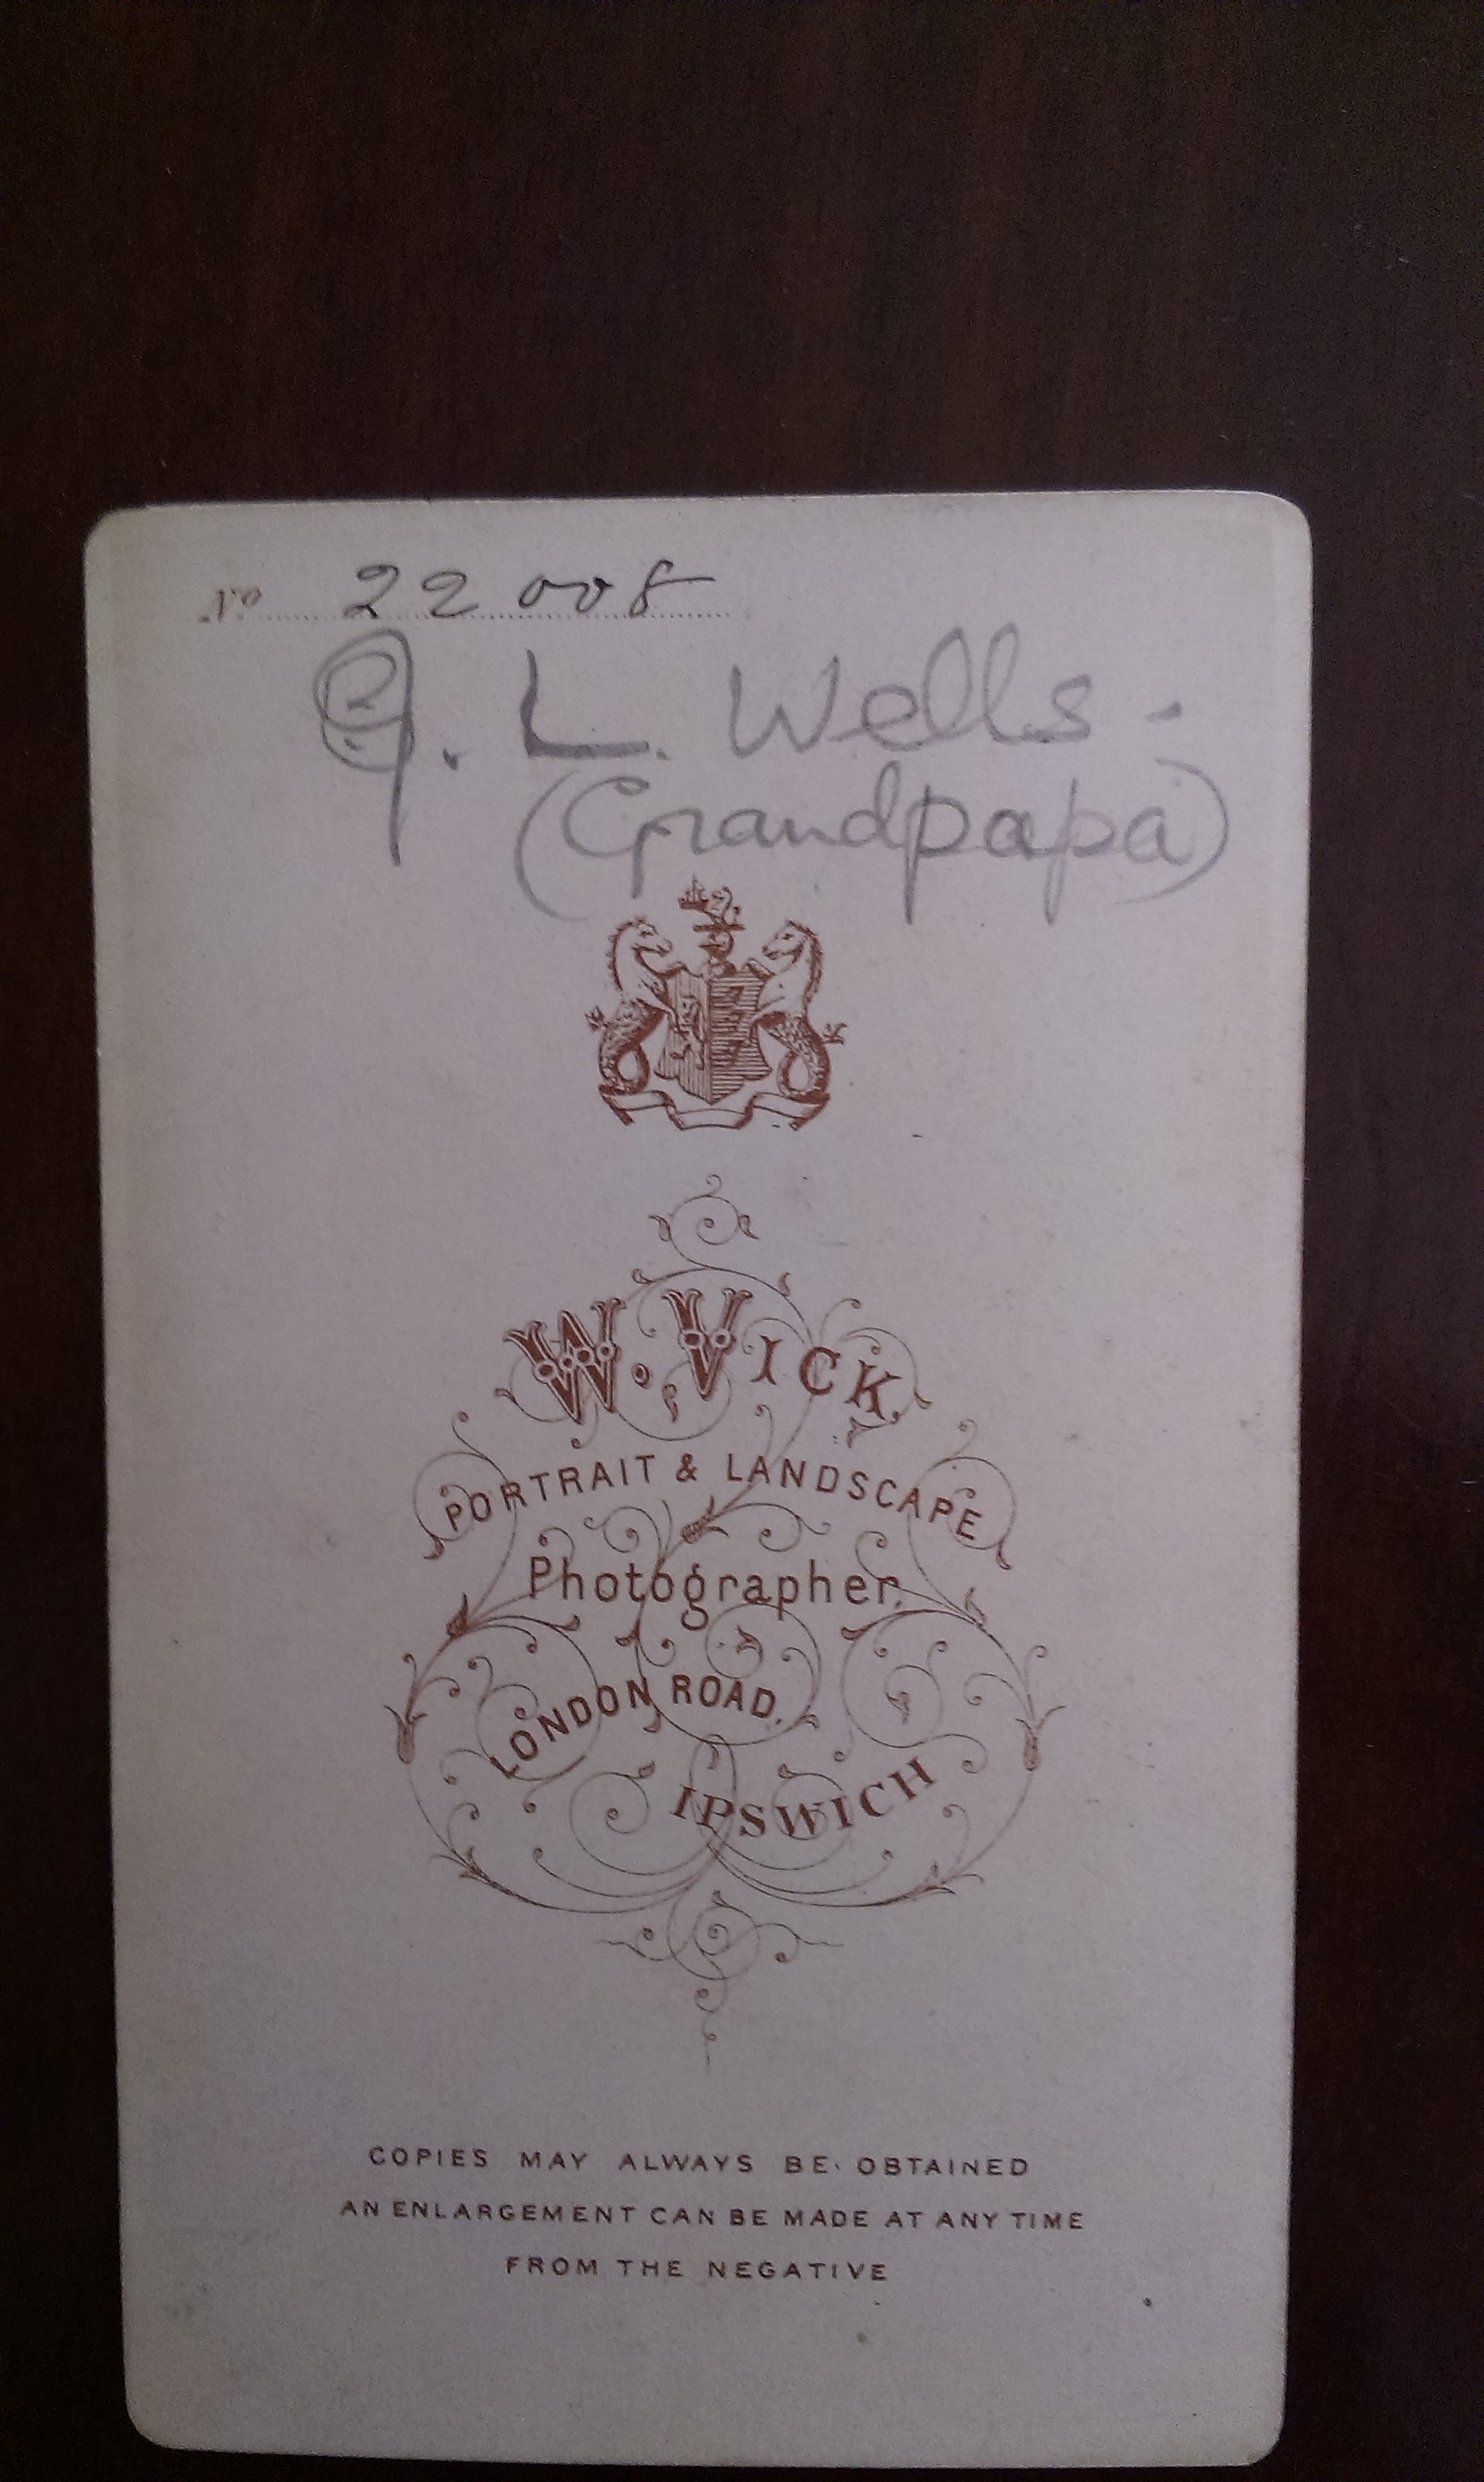 No 22008
G. L. Wells -
(Grandpapa)
W. VICK,
PORTRAIT & LANDSCAPE
Photographer,
LONDON ROAD,
IPSWICH
COPIES MAY ALWAYS BE OBTAINED
AN ENLARGEMENT CAN BE MADE AT ANY TIME
FROM THE NEGATIVE